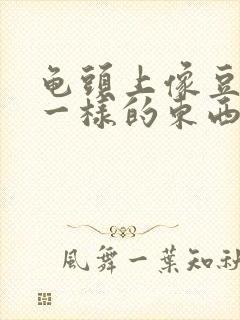 龟頭上像豆
一樣的東西
風舞一葉知秋